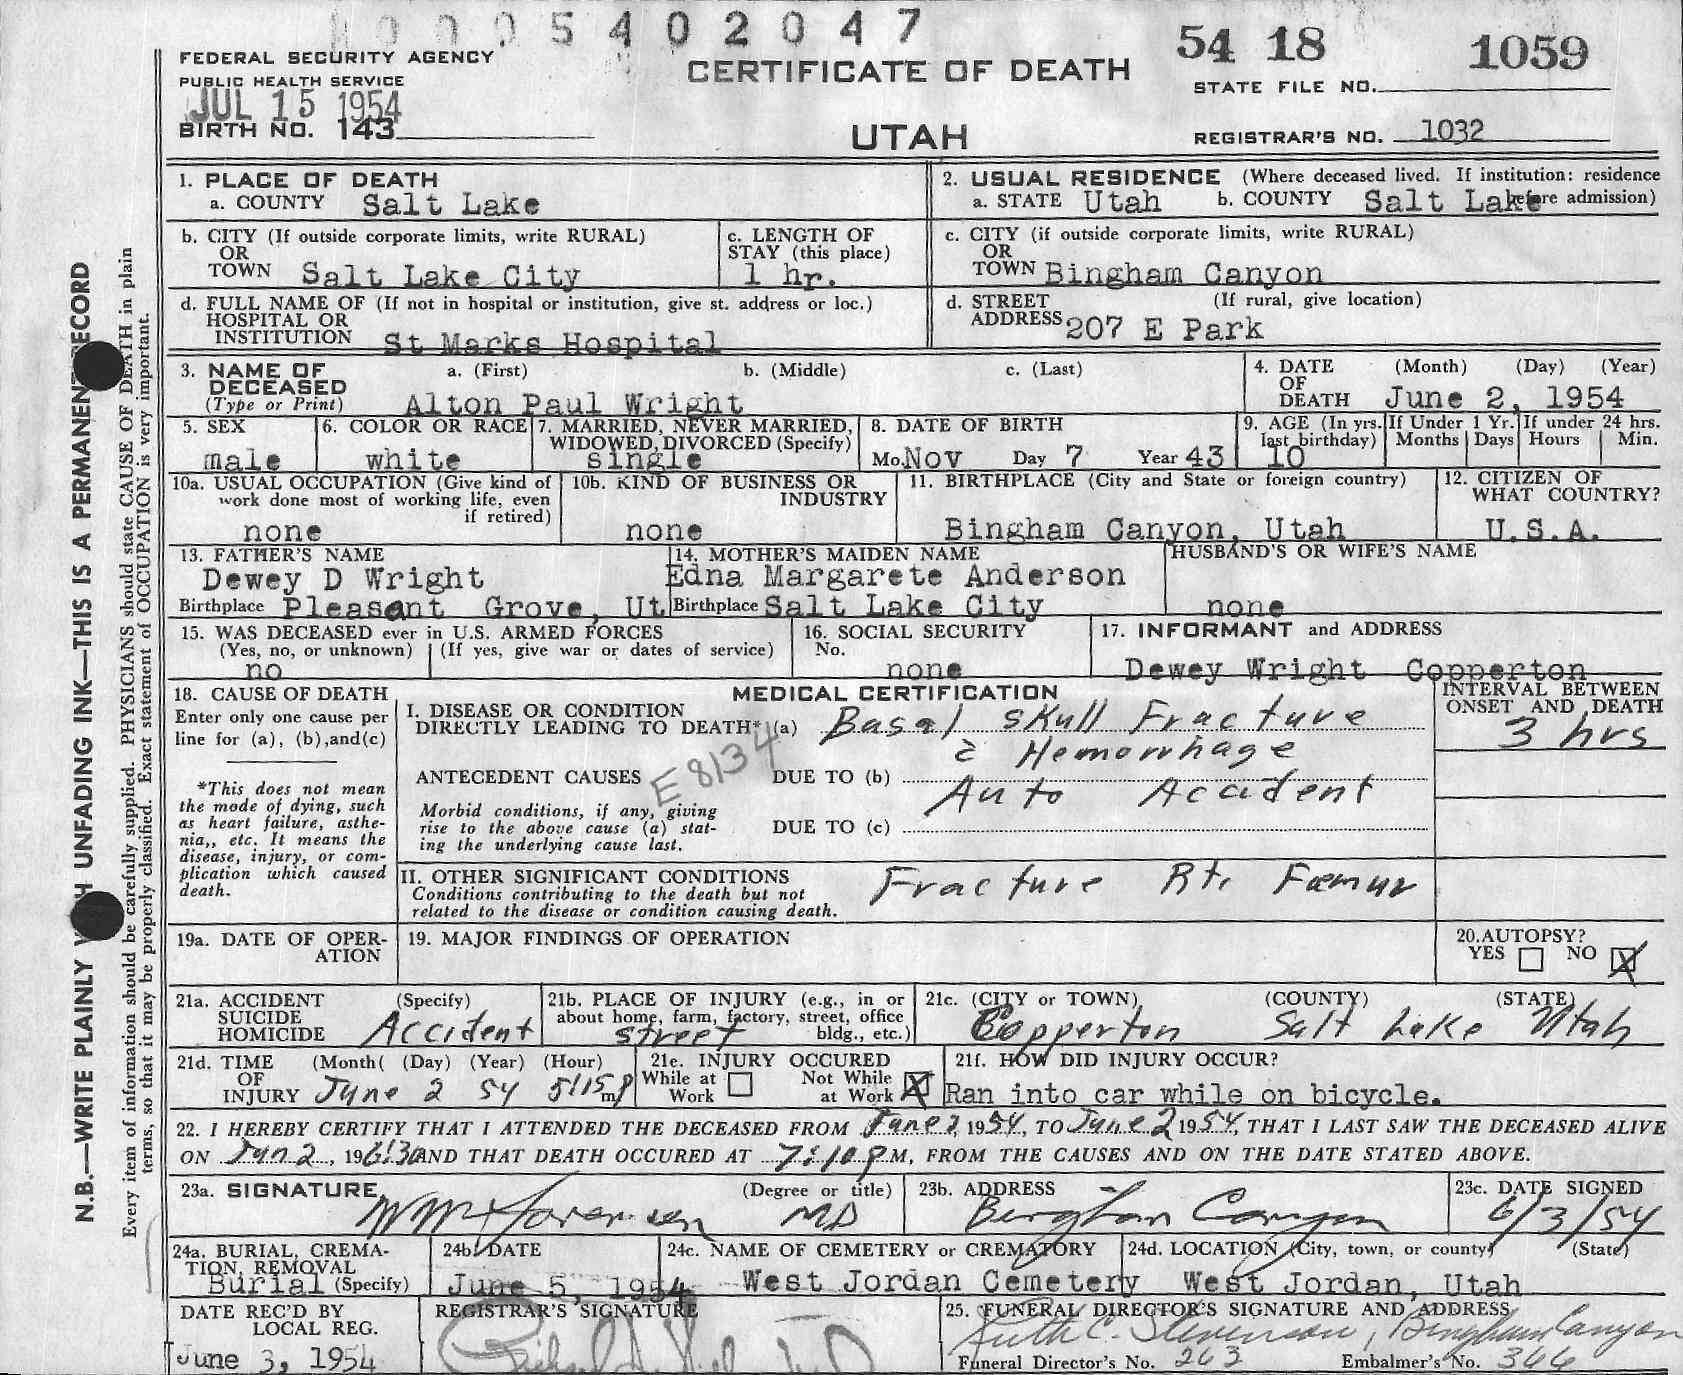 0005402047
FEDERAL SECURITY AGENCY
PUBLIC HEALTH SERVICE
JUL 15 1954
BIRTH NO. 143
CERTIFICATE OF DEATH
UTAH
54 18 1059
STATE FILE NO.
REGISTRAR'S NO. 1032
N.B.—WRITE PLAINLY UNFADING INK—THIS IS A PERMANENT RECORD
Every item of information should be carefully supplied. PHYSICIANS should state CAUSE OF DEATH in plain
terms, so that it may be properly classified. Exact statement of OCCUPATION is very important.
1. PLACE OF DEATH
a. COUNTY Salt Lake
2. USUAL RESIDENCE (Where deceased lived. If institution: residence before admission)
a. STATE Utah b. COUNTY Salt Lake
b. CITY (If outside corporate limits, write RURAL)
OR
TOWN Salt Lake City
c. LENGTH OF
STAY (this place)
1 hr.
c. CITY (if outside corporate limits, write RURAL)
OR
TOWN Bingham Canyon
d. FULL NAME OF (If not in hospital or institution, give st. address or loc.)
HOSPITAL OR
INSTITUTION St Marks Hospital
d. STREET (If rural, give location)
ADDRESS 207 E Park
3. NAME OF a. (First) b. (Middle) c. (Last)
DECEASED
(Type or Print) Alton Paul Wright
4. DATE (Month) (Day) (Year)
OF
DEATH June 2, 1954
5. SEX
male
6. COLOR OR RACE
white
7. MARRIED, NEVER MARRIED,
WIDOWED, DIVORCED (Specify)
single
8. DATE OF BIRTH
Mo. Nov Day 7 Year 43
9. AGE (In yrs. last birthday)
10
If Under 1 Yr.
Months Days
If under 24 hrs.
Hours Min.
10a. USUAL OCCUPATION (Give kind of
work done most of working life, even
if retired)
none
10b. KIND OF BUSINESS OR
INDUSTRY
none
11. BIRTHPLACE (City and State or foreign country)
Bingham Canyon, Utah
12. CITIZEN OF
WHAT COUNTRY?
U.S.A.
13. FATHER'S NAME
Dewey D Wright
Birthplace Pleasant Grove, Ut
14. MOTHER'S MAIDEN NAME
Edna Margarete Anderson
Birthplace Salt Lake City
HUSBAND'S OR WIFE'S NAME
none
15. WAS DECEASED ever in U.S. ARMED FORCES
(Yes, no, or unknown) (If yes, give war or dates of service)
no
16. SOCIAL SECURITY
No.
none
17. INFORMANT and ADDRESS
Dewey Wright Copperton
18. CAUSE OF DEATH
Enter only one cause per
line for (a), (b),and(c)
*This does not mean
the mode of dying, such
as heart failure, asthe-
nia,, etc. It means the
disease, injury, or com-
plication which caused
death.
MEDICAL CERTIFICATION
I. DISEASE OR CONDITION
DIRECTLY LEADING TO DEATH* (a) Basal Skull Fracture
c̄ Hemorrhage
E8134
ANTECEDENT CAUSES DUE TO (b)
Auto Accident
Morbid conditions, if any, giving
rise to the above cause (a) stat-
ing the underlying cause last.
DUE TO (c)
INTERVAL BETWEEN
ONSET AND DEATH
3 hrs
II. OTHER SIGNIFICANT CONDITIONS
Conditions contributing to the death but not
related to the disease or condition causing death.
Fracture Rt. Femur
19a. DATE OF OPER-
ATION
19. MAJOR FINDINGS OF OPERATION
20.AUTOPSY?
YES NO X
21a. ACCIDENT (Specify)
SUICIDE
HOMICIDE Accident
21b. PLACE OF INJURY (e.g., in or
about home, farm, factory, street, office
bldg., etc.)
street
21c. (CITY or TOWN) (COUNTY) (STATE)
Copperton Salt Lake Utah
21d. TIME (Month( (Day) (Year) (Hour)
OF
INJURY June 2 54 5:15 p m
21e. INJURY OCCURED
While at Work
Not While at Work X
21f. HOW DID INJURY OCCUR?
Ran into car while on bicycle.
22. I HEREBY CERTIFY THAT I ATTENDED THE DECEASED FROM June 2, 1954, TO June 2 1954, THAT I LAST SAW THE DECEASED ALIVE
ON Jun 2, 19 6:30 AND THAT DEATH OCCURED AT 7:10 P M, FROM THE CAUSES AND ON THE DATE STATED ABOVE.
23a. SIGNATURE (Degree or title)
MD
23b. ADDRESS
Bingham Canyon
23c. DATE SIGNED
6/3/54
24a. BURIAL, CREMA-
TION, REMOVAL
Burial (Specify)
24b. DATE
June 5, 1954
24c. NAME OF CEMETERY or CREMATORY
West Jordan Cemetery
24d. LOCATION (City, town, or county) (State)
West Jordan, Utah
DATE REC'D BY
LOCAL REG.
June 3, 1954
REGISTRAR'S SIGNATURE
25. FUNERAL DIRECTOR'S SIGNATURE AND ADDRESS
Ruth C. Stevenson, Bingham Canyon
Funeral Director's No. 263 Embalmer's No. 366